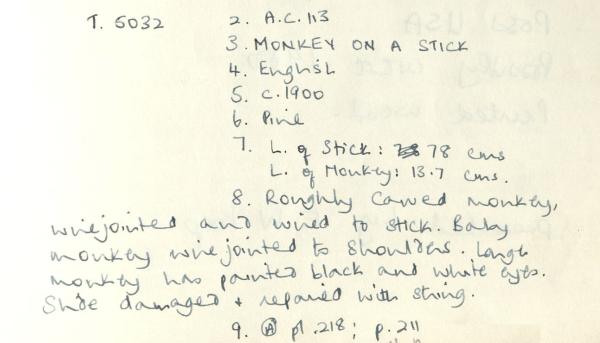 T. 5032 2. A.C. 113
3. MONKEY ON A STICK
4. English
5. c.1900
6. Pine
7. L. of Stick: 78 cms
L. of Monkey: 13.7 cms.
8. Roughly carved monkey,
wirejointed and wired to stick. Baby
monkey wirejointed to shoulders. Large
monkey has painted black and white eyes.
damaged + repaired with string.
9. Ⓐ pl.218; p.211